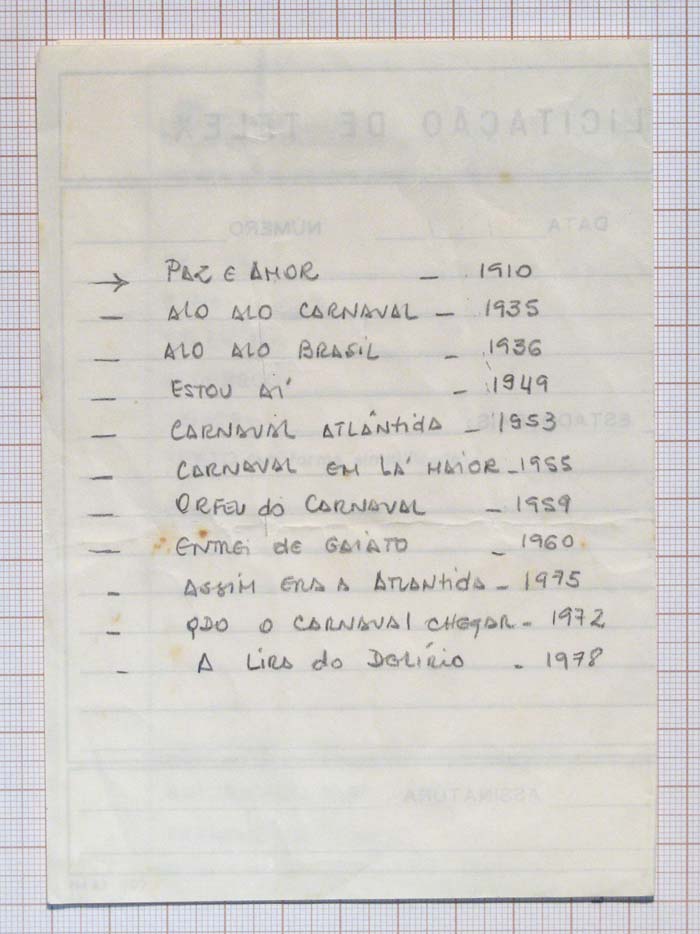 LICITAÇÃO DE TELEX
DATA / / NÚMERO
→ PAZ E AMOR — 1910
— ALO ALO CARNAVAL — 1935
— ALO ALO BRASIL — 1936
— ESTOU AÍ — 1949
— CARNAVAL ATLÂNTIDA — 1953
— CARNAVAL EM LÁ MAIOR — 1955
— ORFEU do CARNAVAL — 1959
— ENTREI de GAIATO — 1960
— ASSIM ERA A ATLANTIDA — 1975
— QDO O CARNAVAL CHEGAR — 1972
— A LIRA do DELÍRIO — 1978
ASSINATURA